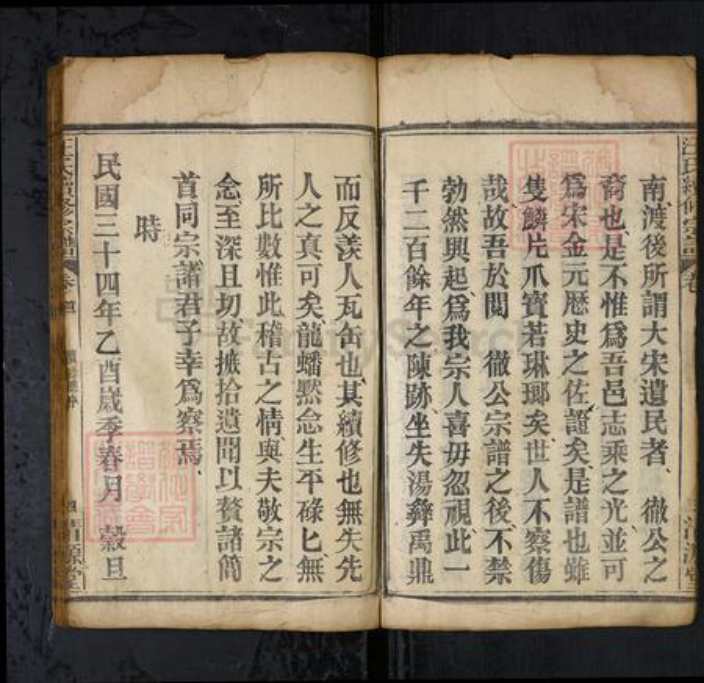 南渡後所謂大宋遺民者、徹公之
裔也是不惟爲吾邑志乘之光並可
爲宋金元歷史之佐證矣是譜也雖
隻鱗片爪寳若琳瑯矣、世人不察傷
哉、故吾於閱　徹公宗譜之後、不禁
勃然興起爲我宗人喜毋忽視此一
千二百餘年之陳跡、坐失湯彝禹鼎
而反羡人瓦缶也、其續修也無失先
人之真可矣、龍蟠黙念生平碌匕無
所比數惟此稽古之情與夫敬宗之
念、至深且切、故摭拾遺聞以贅諸簡
首同宗諸君子幸爲察焉、
時
民國三十四年乙酉歲季春月　穀旦
汪氏續修宗譜
卷首
四
清源堂
汪氏續修宗譜
卷
清源堂